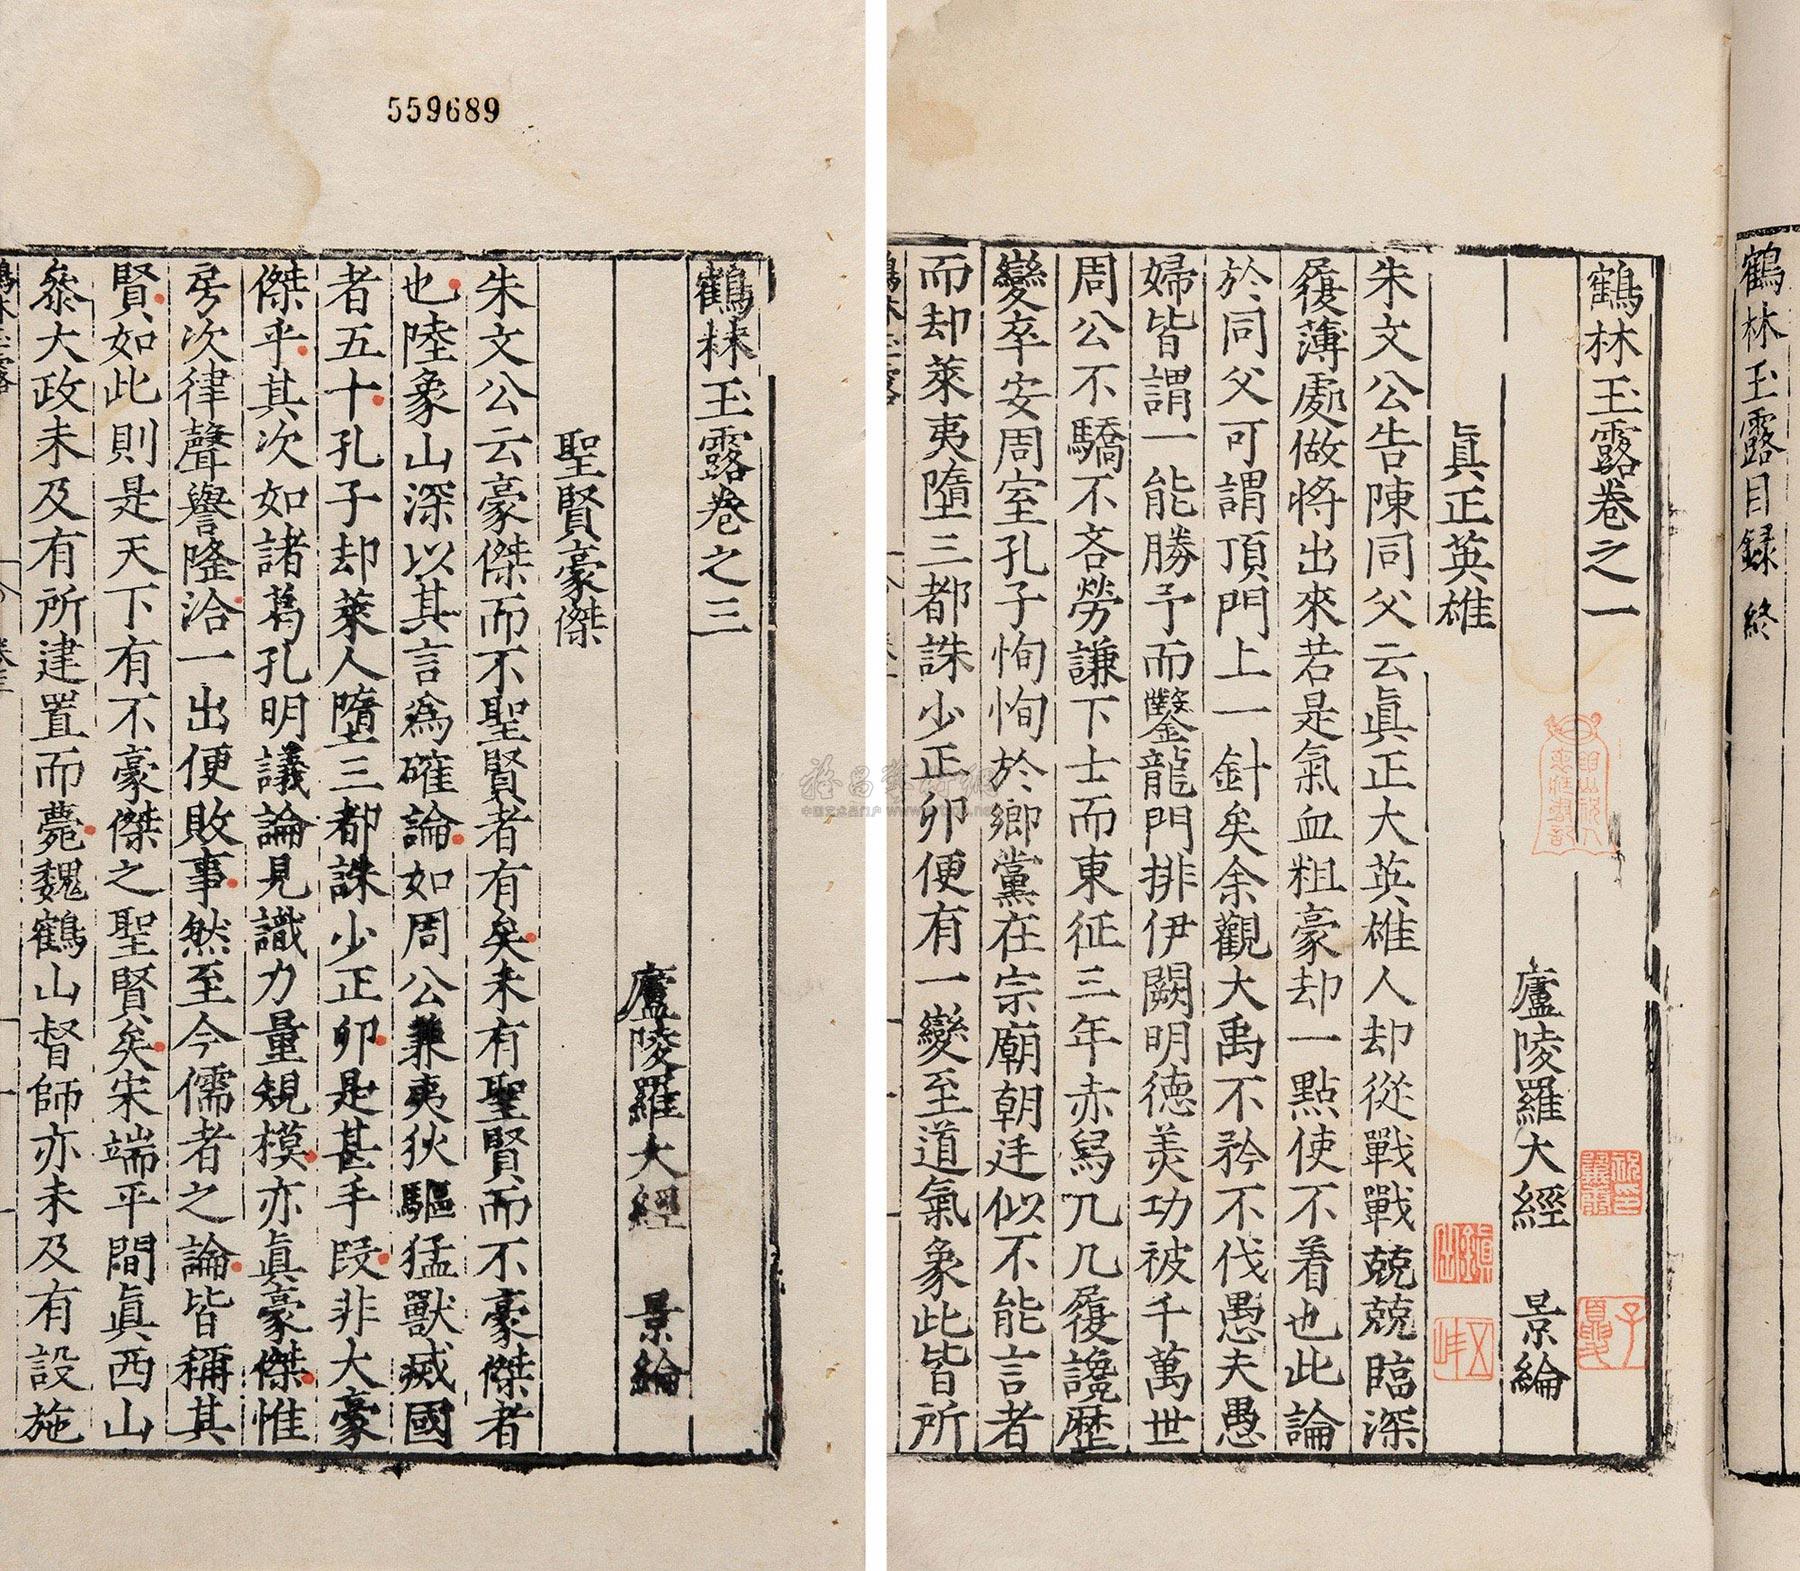 鶴林玉露目録 終
鶴林玉露卷之一
廬陵羅大經 景綸
眞正英雄
朱文公告陳同父云眞正大英雄人却從戰戰兢兢臨深
履薄處做將出來若是氣血粗豪却一點使不着也此論
於同父可謂頂門上一針矣余觀大禹不矜不伐愚夫愚
婦皆謂一能勝予而鑿龍門排伊闕明德美功被千萬世
周公不驕不吝勞謙下士而東征三年赤舄几几履讒歷
變卒安周室孔子恂恂於鄉黨在宗廟朝廷似不能言者
而却萊夷墮三都誅少正卯便有一變至道氣象此皆所
559689
鶴林玉露卷之三
廬陵羅大經 景綸
聖賢豪傑
朱文公云豪傑而不聖賢者有矣未有聖賢而不豪傑者
也陸象山深以其言爲確論如周公兼夷狄驅猛獸滅國
者五十孔子却萊人墮三都誅少正卯是甚手段非大豪
傑乎其次如諸葛孔明議論見識力量規模亦眞豪傑惟
房次律聲譽隆洽一出便敗事然至今儒者之論皆稱其
賢如此則是天下有不豪傑之聖賢矣宋端平間眞西山
叅大政未及有所建置而薨魏鶴山督師亦未及有設施